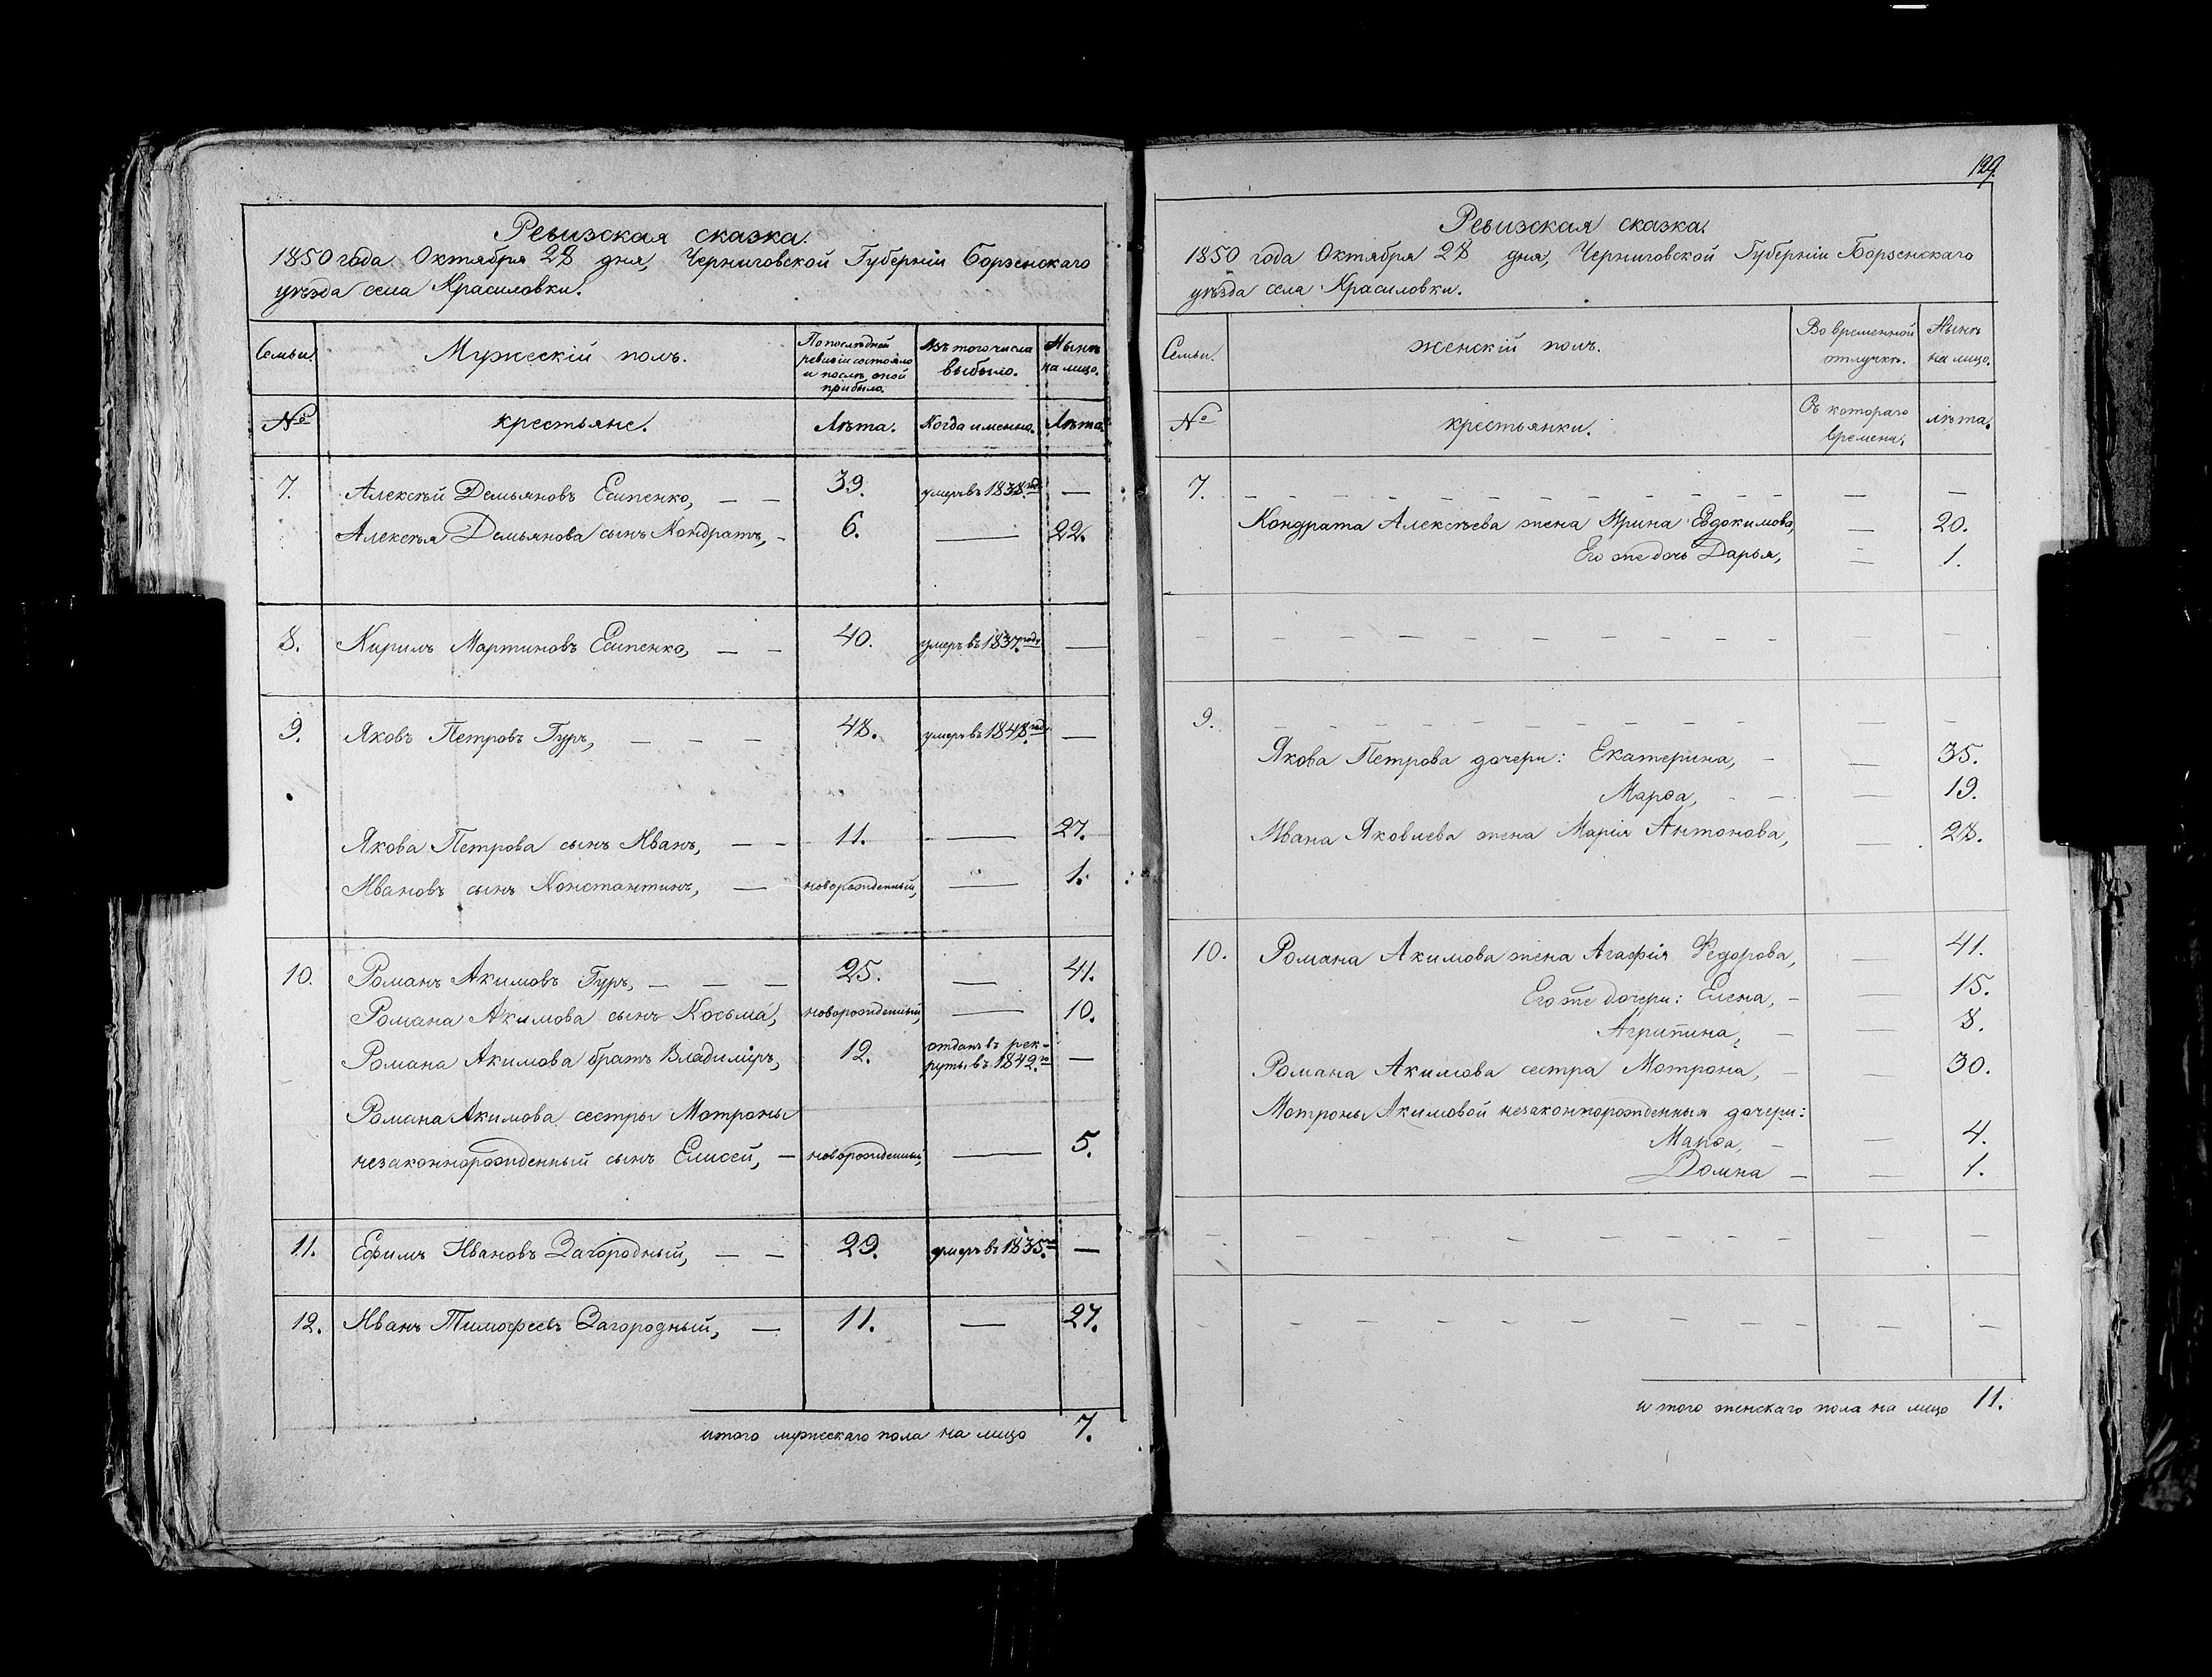 Ревизская сказка.
1850 года Октября 28 дня, Черниговской Губерніи Борзенскаго
уѣзда села Красиловки.
Семьи. Мужескій полъ. По послѣдней ревизіи состояло и послѣ оной прибыло. Изъ того числа выбыло. Нынѣ на лицо.
№ крестьяне. Лѣта. Когда именно. Лѣта.
7. Алексѣй Демьяновъ Есипенко, — — 39. умеръ въ 1838 году —
Алексѣя Демьянова сынъ Кондратъ, - 6. — 22.
8. Кирилъ Мартиновъ Есипенко, — — 40. умеръ въ 1837 году —
9. Яковъ Петровъ Гуръ, — — — 48. умеръ въ 1848 году —
Якова Петрова сынъ Иванъ, — - 11. — 27.
Ивановъ сынъ Константинъ, — новорожденный, — 1.
10. Романъ Акимовъ Гуръ, — — — 25. — 41.
Романа Акимова сынъ Косьма, новорожденный, — 10.
Романа Акимова братъ Владиміръ, 12. отданъ въ рек-
руты въ 1842 го —
Романа Акимова сестры Мотроны
незаконнорожденный сынъ Елисей, — новорожденный, — 5.
11. Ефимъ Ивановъ Загородный, — — 29. умеръ въ 1835 го —
12. Иванъ Тимофеевъ Загородный, — 11. — 27.
итого мужескаго пола на лицо 7.
129.
Ревизская сказка.
1850 года Октября 28 дня, Черниговской Губерніи Борзенскаго
уѣзда села Красиловки.
Семьи. женскій полъ. Во временной отлучкѣ. Нынѣ на лицо.
№ крестьянки. Съ котораго времени. лѣта.
7. — — —
Кондрата Алексѣева жена Ирина Евдокимова, — 20.
Его же дочь Дарья, — 1.
— — —
9. — — —
Якова Петрова дочери: Екатерина, - — 35.
Марѳа, - - — 19.
Ивана Яковлева жена Марія Антонова, — 28.
10. Романа Акимова жена Агафія Федорова, — 41.
Его же дочери: Елена, - — 15.
Агрипина, - — 8.
Романа Акимова сестра Мотрона, - — 30.
Мотроны Акимовой незаконнорожденныя дочери:
Марѳа, - — 4.
Домна - — 1.
— — —
— — —
итого женскаго пола на лицо 11.